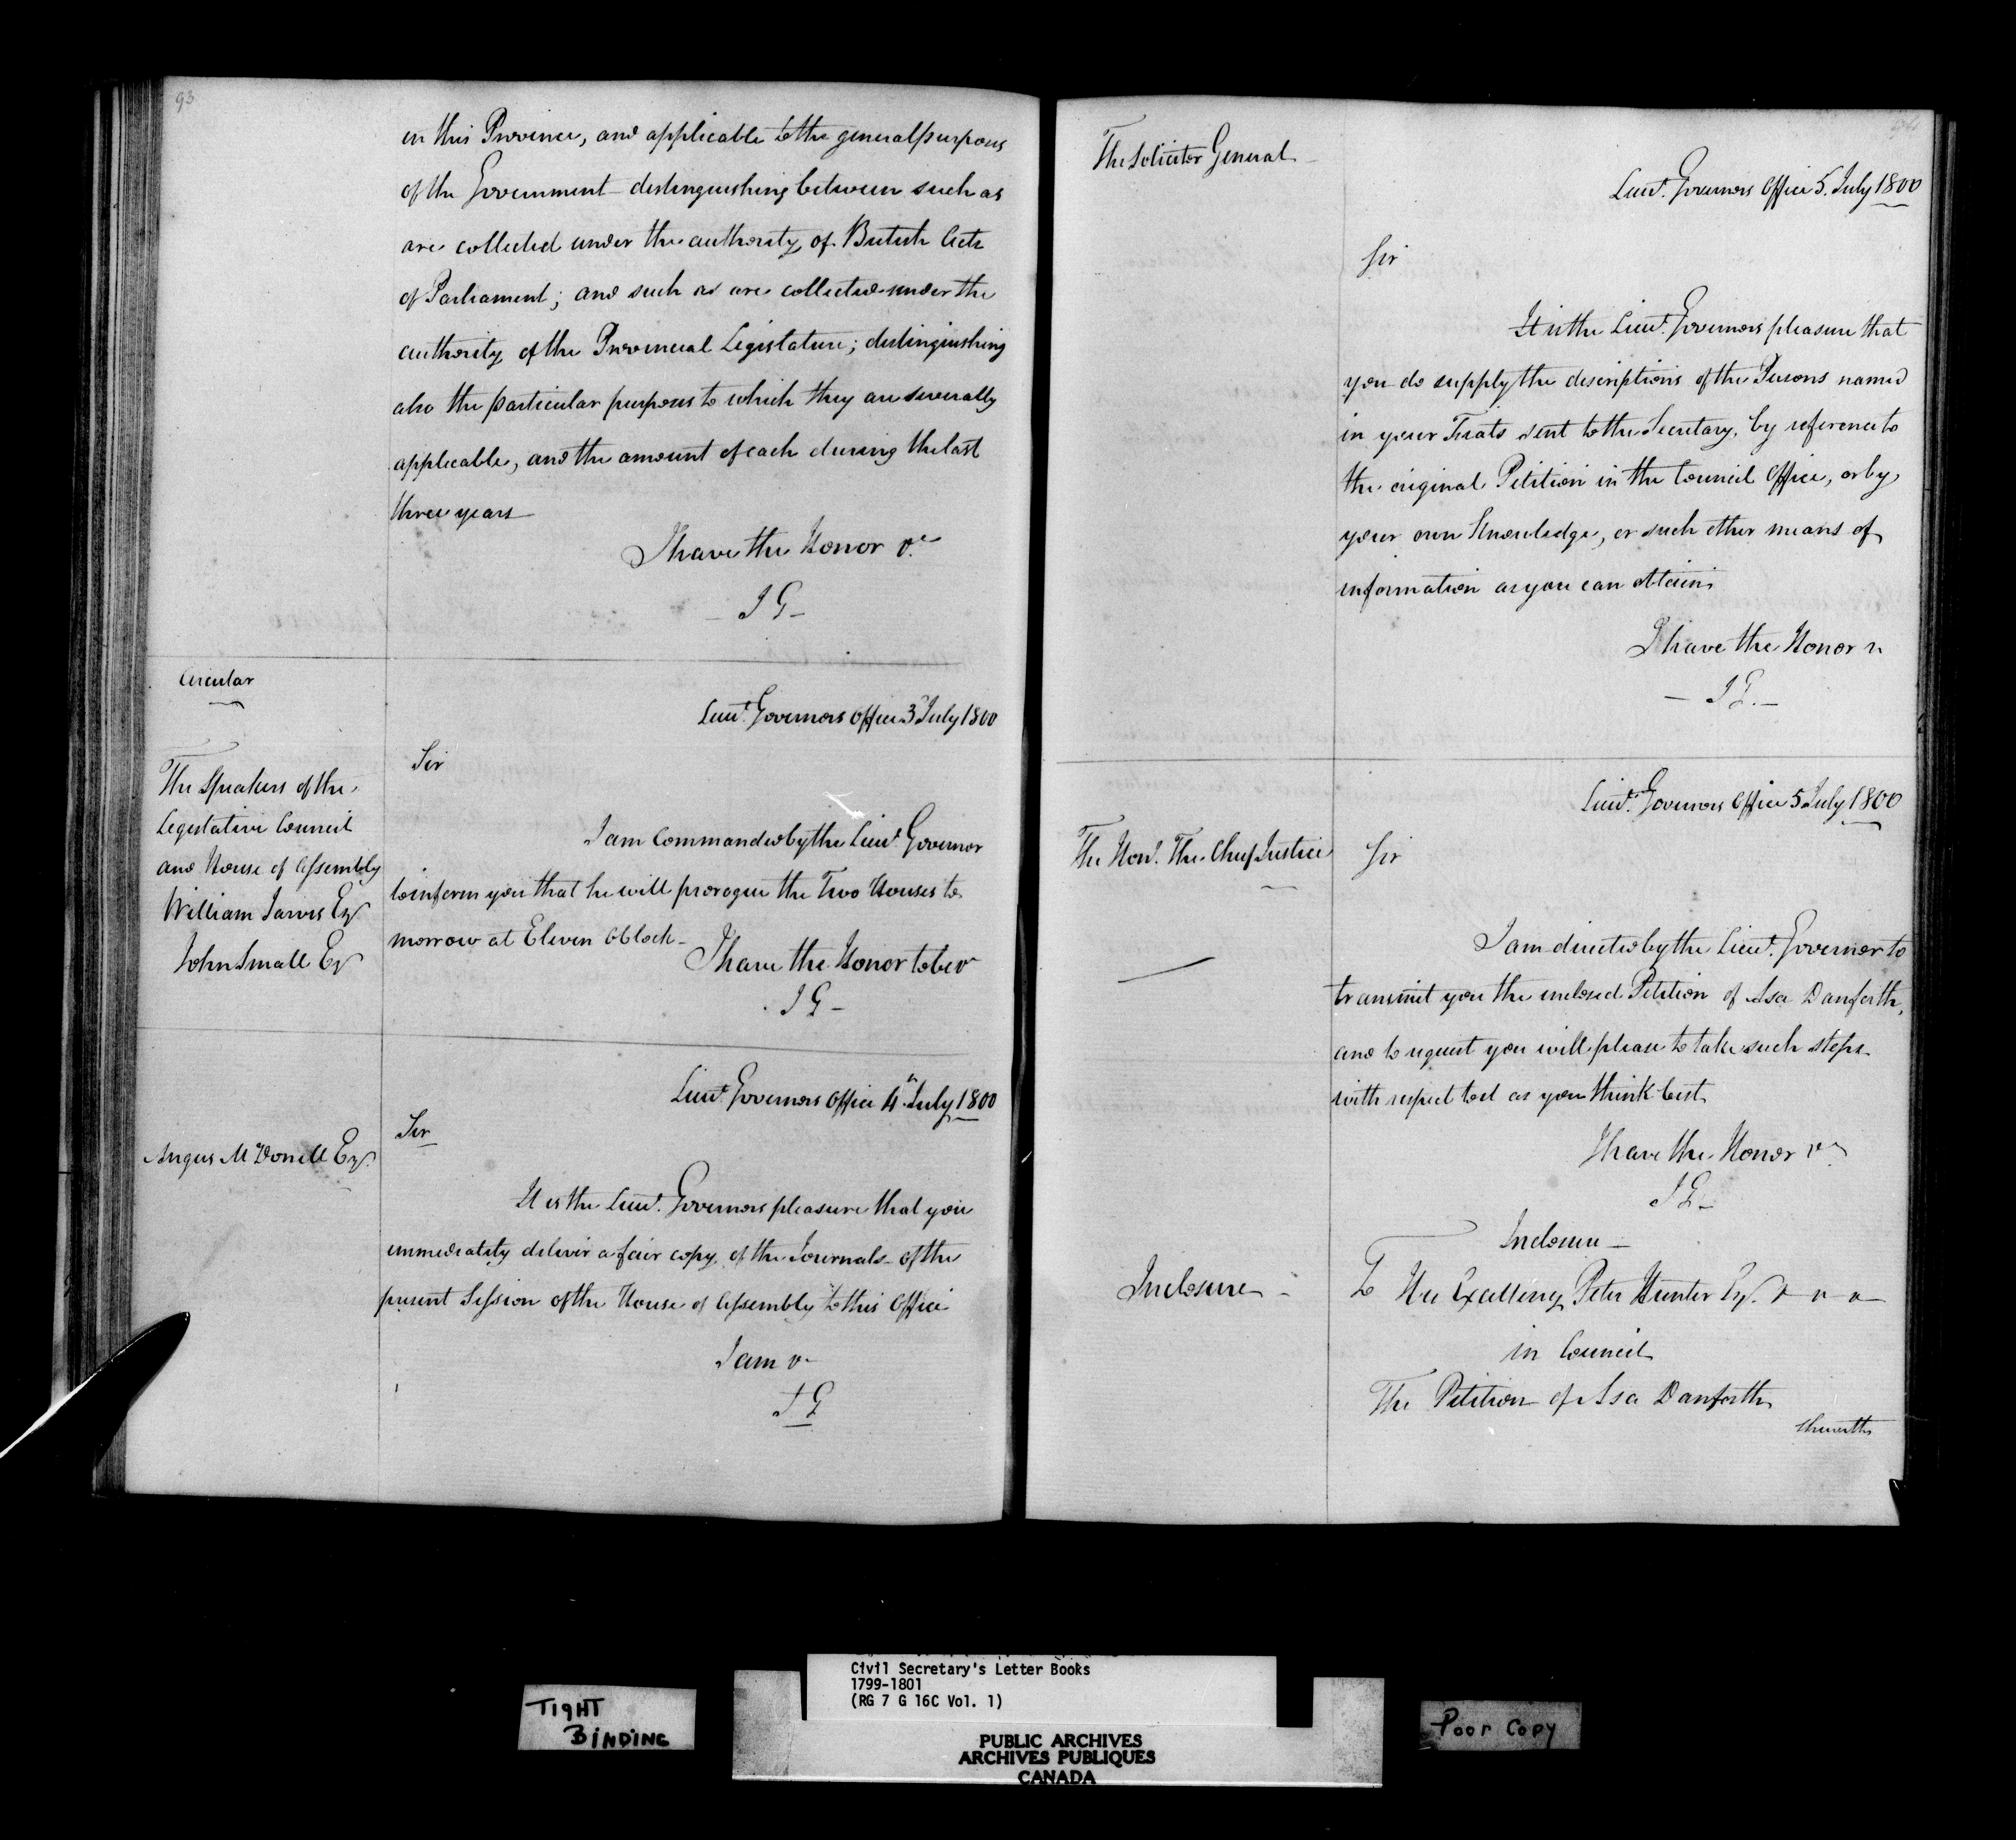 93
in this Province, and applicable to the general purposes
of the Government distinguishing between such as
are collected under the authority of British Acts
of Parliament; and such as are collected under the
authority of the Provincial Legislature; distinguishing
also the particular purposes to which they are severally
applicable, and the amount of each during the last
three years
I have the Honor &c
J G
Circular
Lieut. Governors Office 3 July 1800
The Speakers of the
Legislative Council
and House of Assembly
William Jarvis Esqr
John Small Esqr
Sir
I am Commanded by the Lieut. Governor
to inform you that he will prorogue the Two Houses to
morrow at Eleven OClock
I have the Honor to be &c
J G
Lieut. Governors Office 4th July 1800
Angus McDonell Esqr.
Sir
It is the Lieut. Governors pleasure that you
immediately deliver a fair copy of the Journals of the
present Session of the House of Assembly to this Office
I am &c
J G
The Solicitor General
Lieut. Governors Office 5. July 1800
Sir
It is the Lieut. Governors pleasure that
you do supply the descriptions of the Persons named
in your Fiats sent to the Secretary, by reference to
the original Petition in the Council Office, or by
your own Knowledge, or such other means of
information as you can obtain
I have the Honor &c
J G.
Lieut. Governors Office 5 July 1800
The Hon. The Chief Justice
Sir
I am directed by the Lieut. Governor to
transmit you the inclosed Petition of Asa Danforth,
and to request you will please to take such steps
with respect to it as you think best
I have the Honor &c
J G
Inclosure
Inclosure
To His Excellency Peter Hunter Esqr. &c &c &c
in Council
The Petition of Asa Danforth
Sheweth
TIGHT
BINDING
Civil Secretary's Letter Books
1799-1801
(RG 7 G 16C Vol. 1)
PUBLIC ARCHIVES
ARCHIVES PUBLIQUES
CANADA
Poor Copy